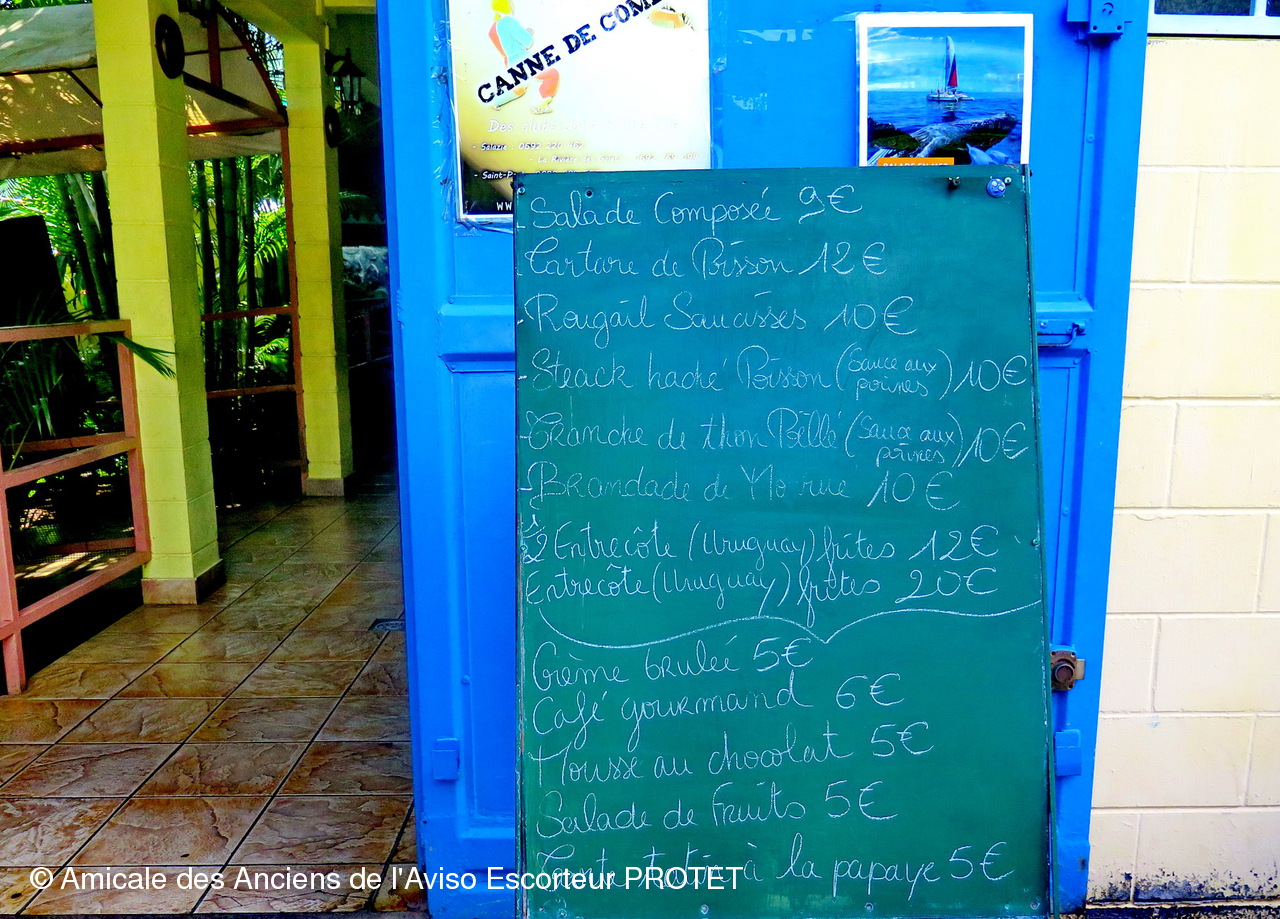 CANNE DE COM
Des clubs
- Salazie : 0692 220 462
- La Rivière
- Saint-P
WW
Salade Composée 9€
- Tartare de Poisson 12€
- Rougail Saucisses 10€
- Steack haché Poisson (Sauce aux poivres) 10€
- Tranche de thon Pôêlé (Sauce aux poivres) 10€
- Brandade de Morue 10€
½ Entrecôte (Uruguay) frites 12€
Entrecôte (Uruguay) frites 20€
Crème brulée 5€
Café gourmand 6€
Mousse au chocolat 5€
Salade de Fruits 5€
Tarte tatin à la papaye 5€
© Amicale des Anciens de l'Aviso Escorteur PROTET